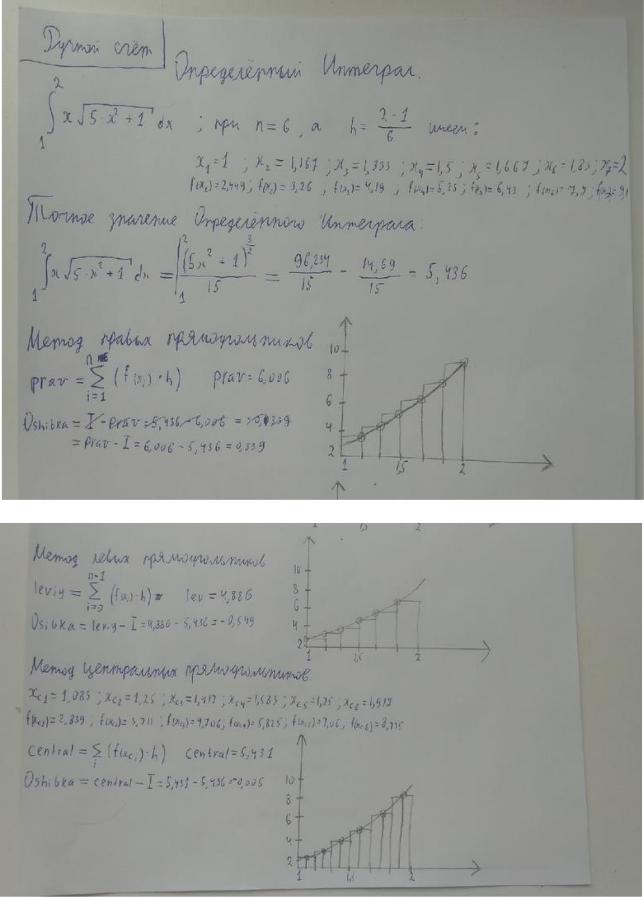 Ручной счёт
Определённый Интеграл.
∫₁² x √(5·x²+1) dx ; при n=6, а h = (2-1)/6 имеем:
x₁=1 ; x₂=1,167 ; x₃=1,333 ; x₄=1,5 ; x₅=1,667 ; x₆=1,83 ; x₇=2
f(x₁)=2,449 ; f(x₂)=3,26 ; f(x₃)=4,19 ; f(x₄)=5,25 ; f(x₅)=6,43 ;
Точное значение Определённого Интеграла:
∫₁² x √(5·x²+1) dx = |₁² (5x²+1)^(3/2) / 15 = 96,234/15 - 14,69/15 = 5,436
Метод правых прямоугольников
prav = Σ i=1 (f(xᵢ)·h) prav = 6,006
Oshibka = I - prav = 5,436 - 6,006 =
= prav - I = 6,006 - 5,436 = 0,339
10
8
6
4
2
1 1,5 2
1,5 2
Метод левых прямоугольников
leviy = Σ i=0 n-1 (f(xᵢ)·h) = lev = 4,886
Osibka = leviy - I = 4,886 - 5,436 = -0,549
10
8
6
4
2
1 1,5 2
Метод центральных прямоугольников.
xc₁=1,083 ; xc₂=1,25 ; xc₃=1,417 ; xc₄=1,583 ; xc₅=1,75 ; xc₆=1,917
f(xc₁)=2,839 ; f(xc₂)=3,711 ; f(xc₃)=4,706 ; f(xc₄)=5,825 ; f(xc₅)=7,06 ;
central = Σ i (f(xcᵢ)·h) central = 5,431
Oshibka = central - I = 5,431 - 5,436 = -0,005
10
8
6
4
2
1 1,5 2